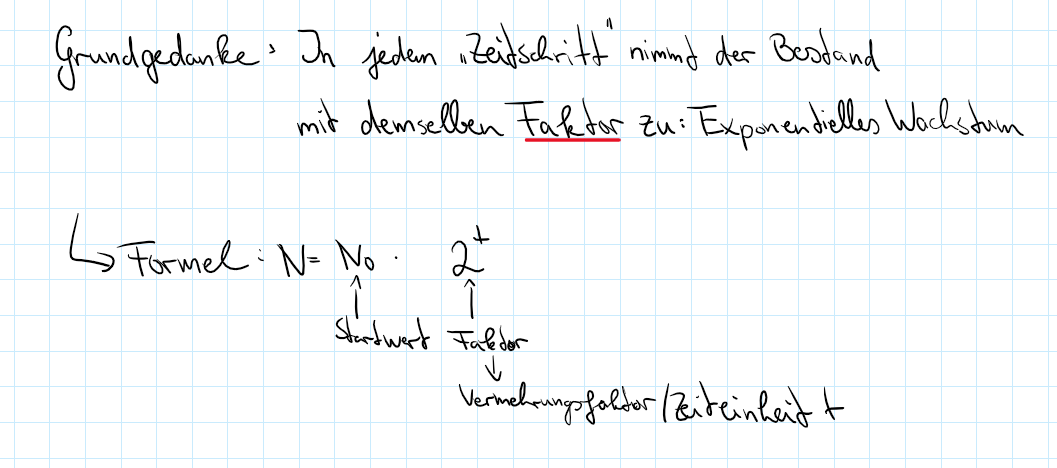 Grundgedanke: In jedem „Zeitschritt" nimmt der Bestand
mit demselben Faktor zu: Exponentielles Wachstum
Formel: N = N₀ · 2ᵗ
Startwert Faktor
Vermehrungsfaktor/Zeiteinheit t